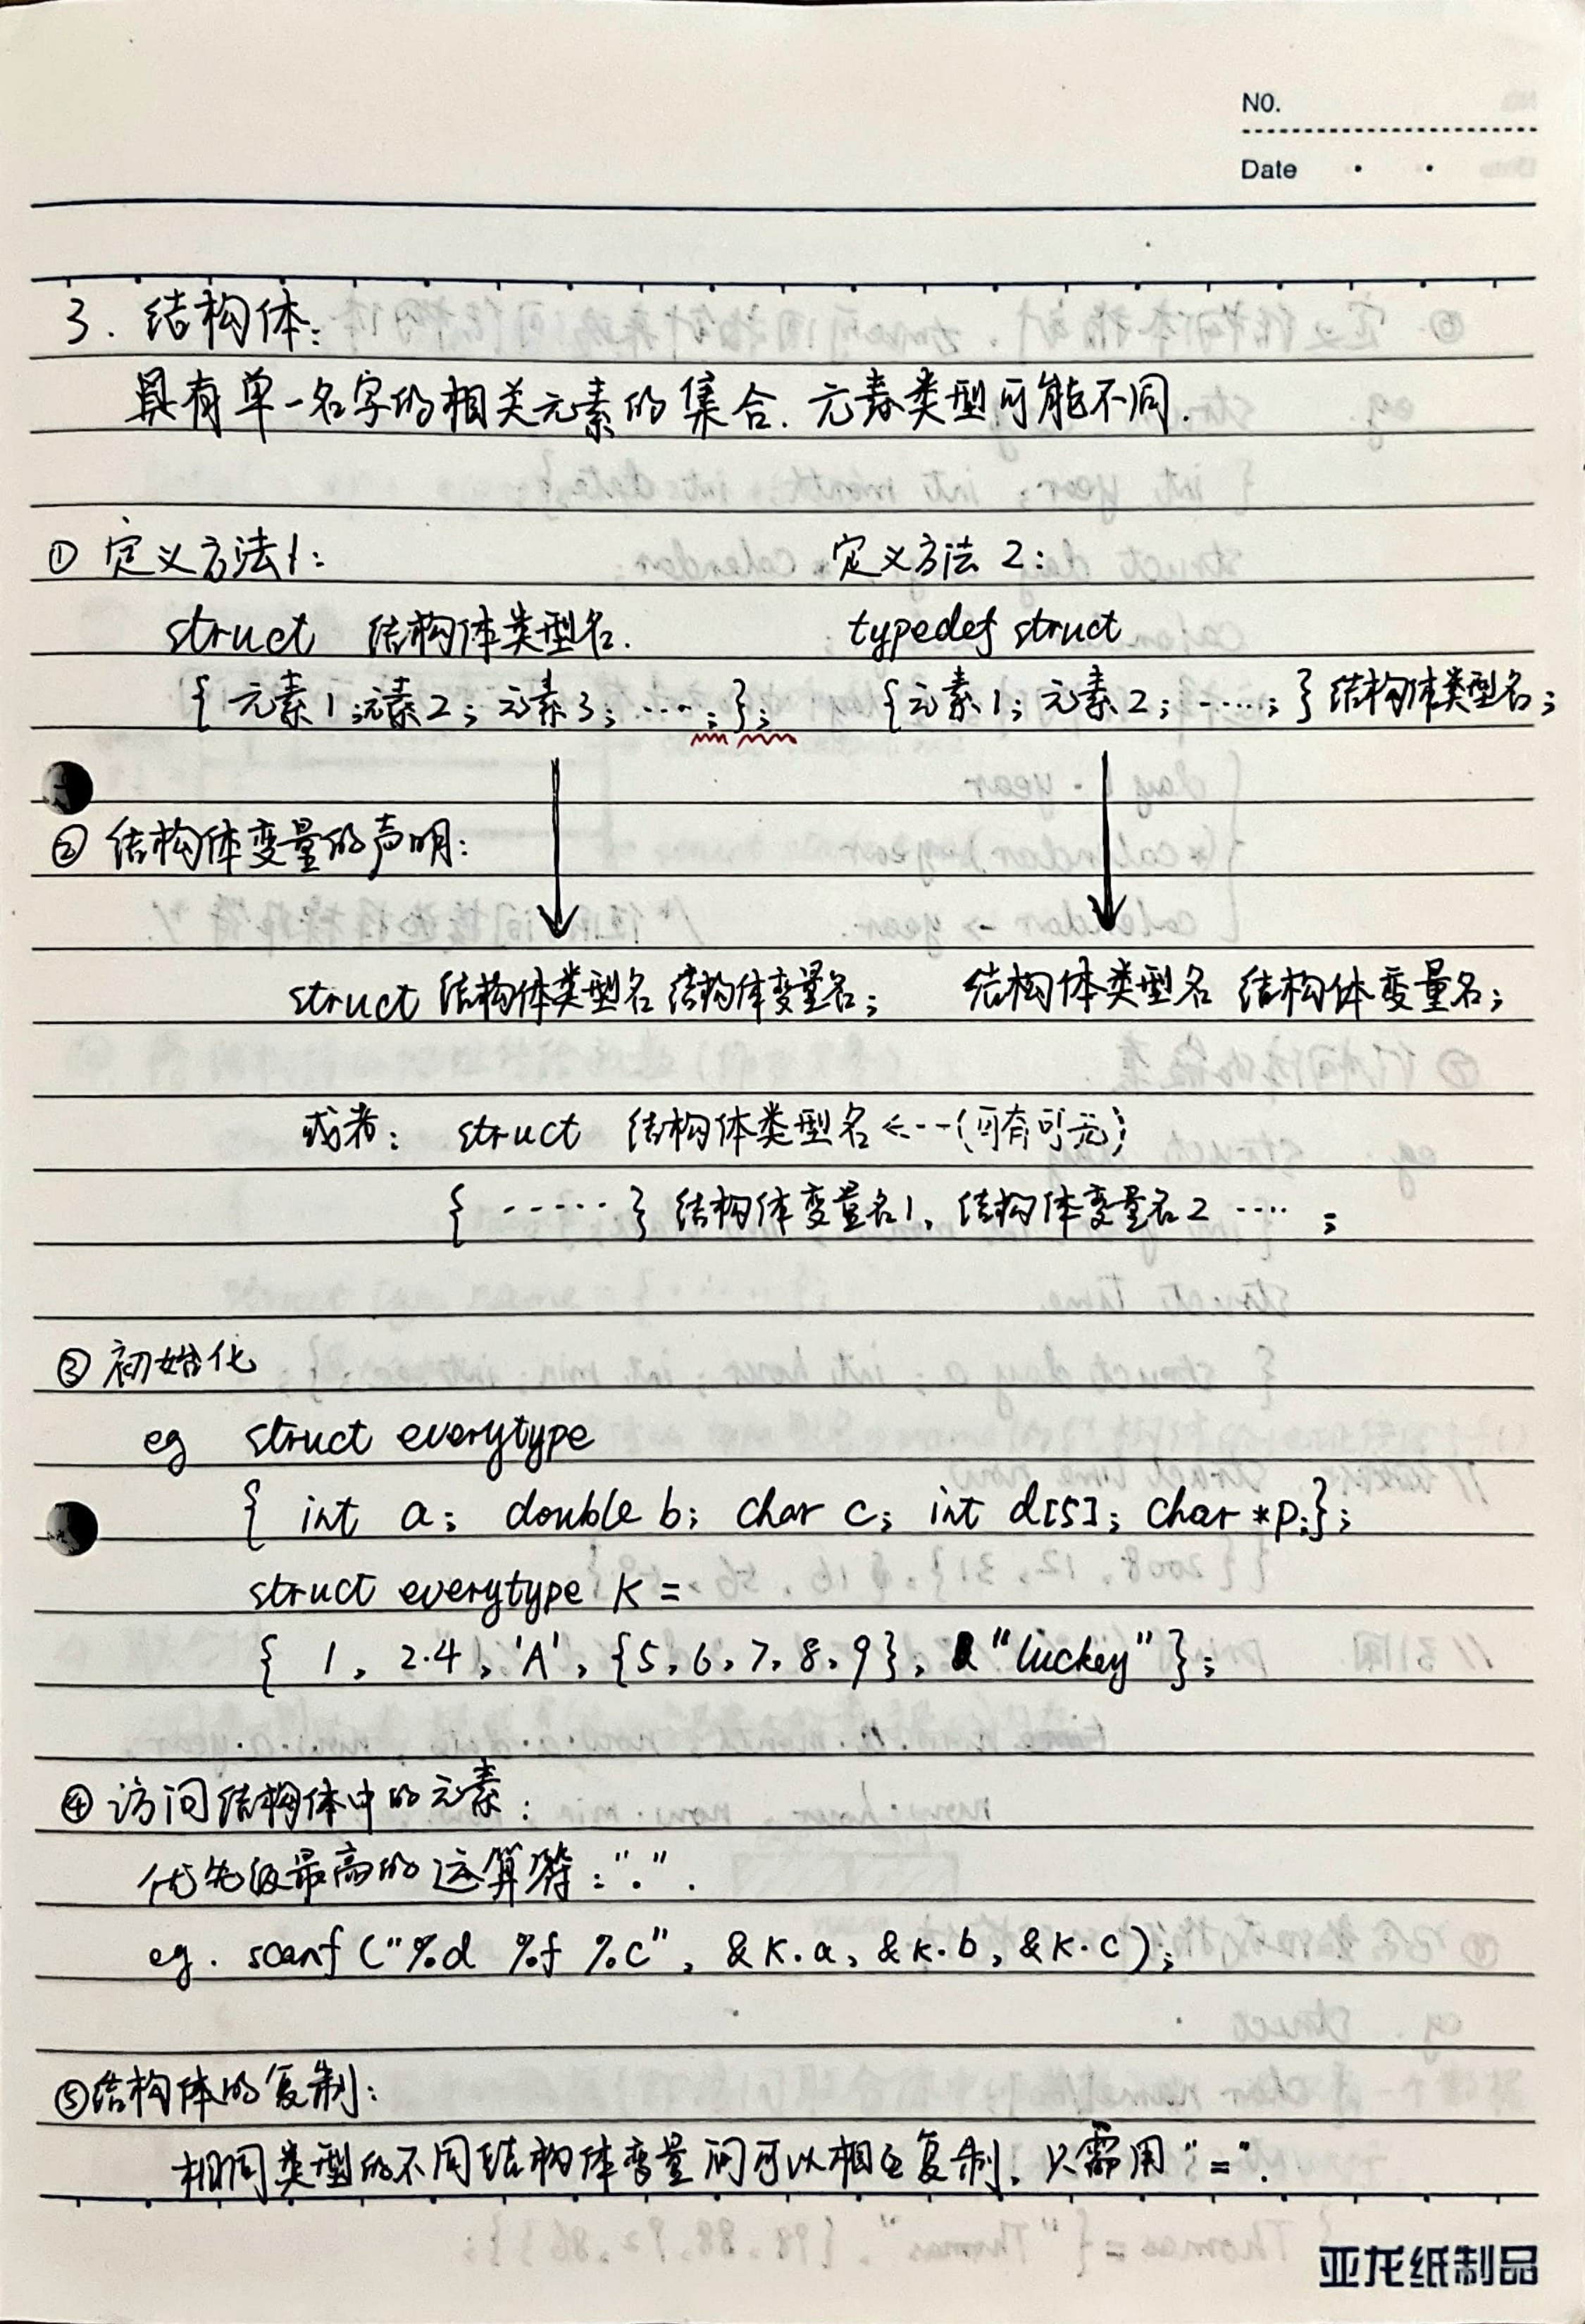 NO.
Date
3. 结构体:
具有单一名字的相关元素的集合. 元素类型可能不同.
① 定义方法1: 定义方法2:
struct 结构体类型名. typedef struct
{ 元素1; 元素2; 元素3; ····; }; {元素1; 元素2; ·····; } 结构体类型名;
② 结构体变量的声明:
struct 结构体类型名 结构体变量名; 结构体类型名 结构体变量名;
或者: struct 结构体类型名 <---(可有可无)
{ ······ } 结构体变量名1, 结构体变量名2 ···· ;
③ 初始化
eg struct everytype
{ int a; double b; char c; int d[5]; char *p;};
struct everytype k =
{ 1, 2.4, 'A', {5, 6, 7, 8, 9}, "luckey" };
④ 访问结构体中的元素:
优先级最高的运算符: ".".
eg. scanf ("%d %f %c", &k.a, &k.b, &k.c);
⑤ 结构体的复制:
相同类型的不同结构体变量间可以相互复制, 只需用 "=".
亚龙纸制品